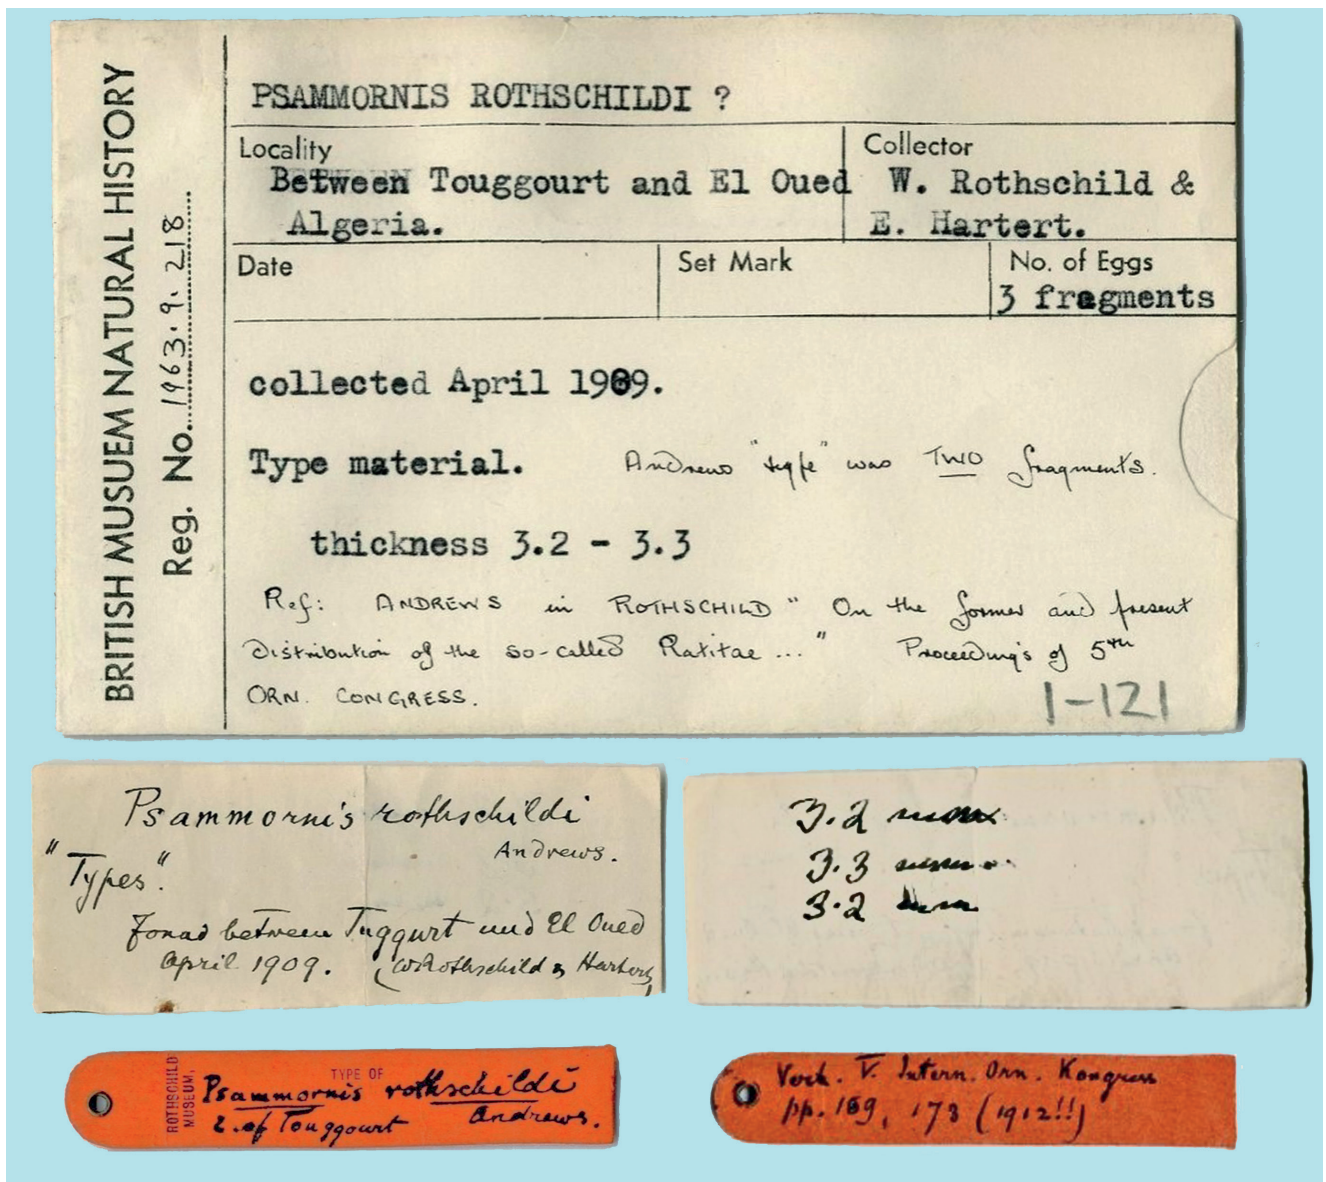 BRITISH MUSUEM NATURAL HISTORY
Reg. No. 1963.9.218
PSAMMORNIS ROTHSCHILDI ?
Locality
Between Touggourt and El Oued
Algeria.
Collector
W. Rothschild &
E. Hartert.
Date
Set Mark
No. of Eggs
3 fragments
collected April 1909.
Type material. Andrews "type" was TWO fragments.
thickness 3.2 - 3.3
Ref: ANDREWS in ROTHSCHILD "On the former and present
distribution of the so-called Ratitae ..." Proceedings of 5TH
ORN. CONGRESS.
1-121
Psammornis rothschildi
Andrews.
"Types".
Found between Tuggurt und El Oued
April 1909. (W. Rothschild & Hartert)
3.2 mm
3.3 mm.
3.2 mm
ROTHSCHILD
MUSEUM,
TYPE OF
Psammornis rothschildi
E. of Touggourt Andrews.
Verh. V. Intern. Orn. Kongress
pp. 169, 173 (1912!!)